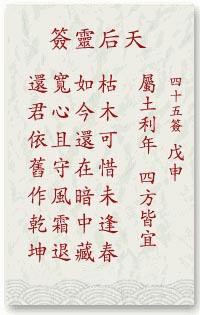 天后靈簽
四十五簽 戊申
屬土利年 四方皆宜
枯木可惜未逢春
如今還在暗中藏
寬心且守風霜退
還君依舊作乾坤